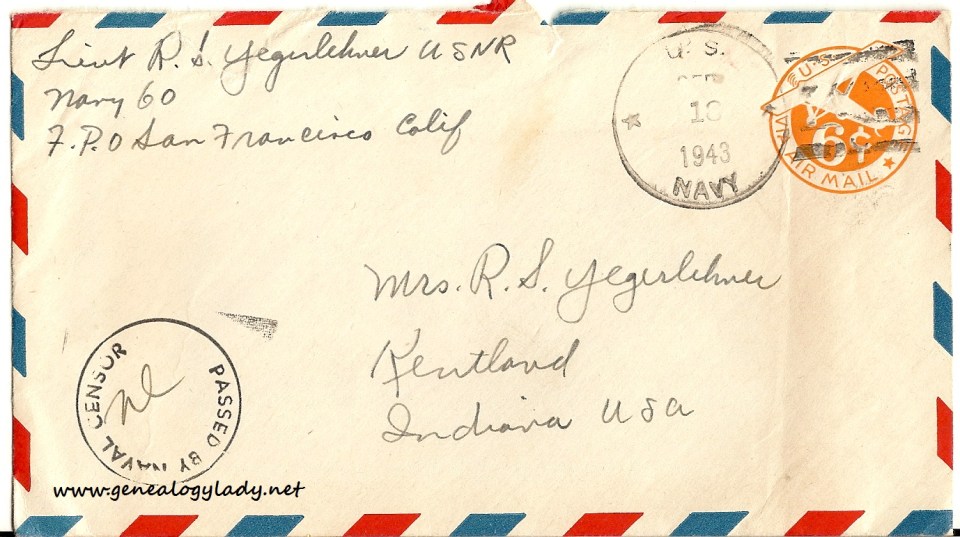 Lieut R. S. Yegerlehner USNR
Navy 60
F.P.O San Francisco Calif
U. S.
18
1943
NAVY
U.S. POSTAGE
6¢
AIR MAIL
Mrs. R. S. Yegerlehner
Kentland
Indiana USA
PASSED BY NAVAL CENSOR
www.genealogylady.net